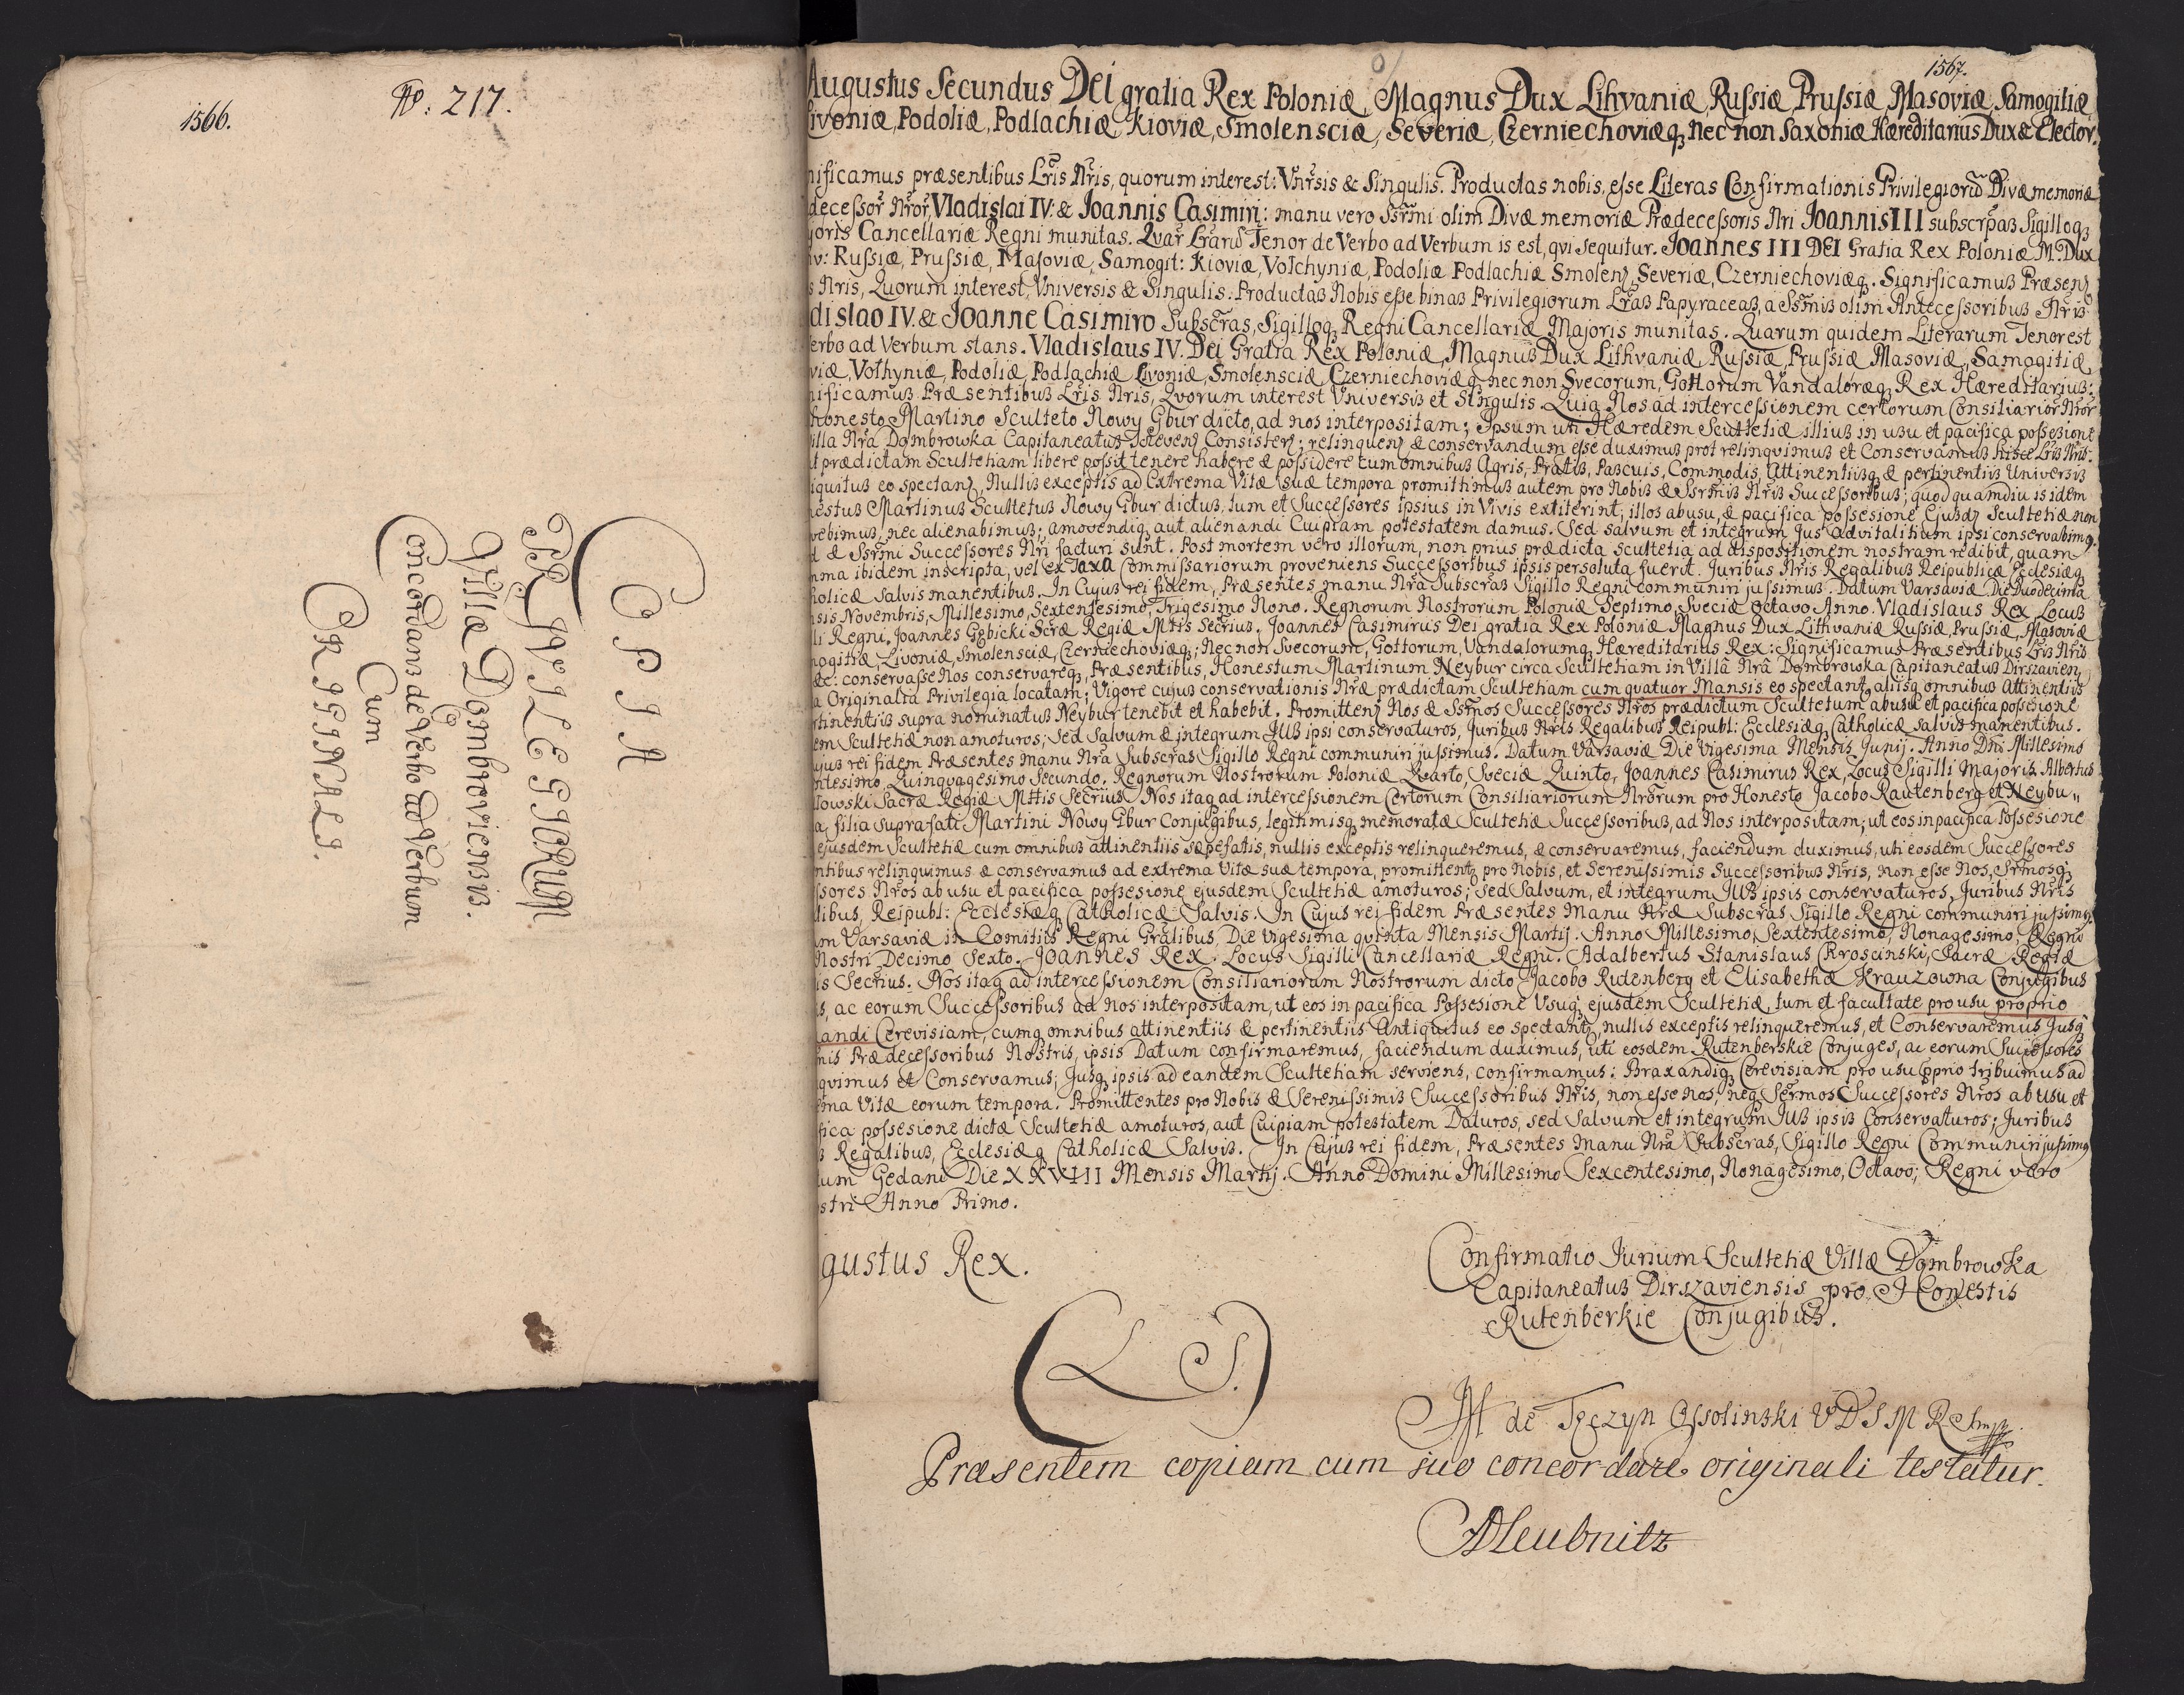 1566.
No: 217.
COPIA
PRIVILEGIORUM
Villæ Dombroviensis.
Concordans de Verbo ad Verbum
Cum
ORIGINALI.
1567.
Augustus Secundus DEI gratia Rex Poloniæ, Magnus Dux Lithvaniæ, Russiæ Prussiæ Masoviæ, Samogitiæ
Livoniæ, Podoliæ, Podlachiæ Kioviæ, Smolensciæ, Severiæ, Czerniechoviæq, nec non Saxoniæ Hæreditarius Dux & Elector.
nificamus præsentibus Lris Nris, quorum interest: Vnrsis & Singulis. Productas nobis esse Literas Confirmationis Privilegiorū Divæ memoriæ
decessor Nror, Vladislai IV: & Joannis Casimiri: manu vero Ssrmi olim Divæ memoriæ Prædecessoris Nri Joannis III subscrpas Sigilloq
joris Cancellariæ Regni munitas. Quar Lrarū Tenor de Verbo ad Verbum is est, qvi sequitur. Joannes III DEI Gratia Rex Poloniæ M: Dux
v: Russiæ, Prussiæ, Masoviæ, Samogit: Kioviæ, Volchyniæ, Podoliæ Podlachiæ Smolens Severiæ, Czerniechoviæq. Significamus Præsens
s Nris, Quorum interest, Vniversis & Singulis. Productas Nobis esse binas Privilegiorum Lras Papyraceas, a Ssrmis olim Antecessoribus Nris
dislao IV. & Joanne Casimiro Subscras, Sigilloq Regni Cancellariæ Majoris munitas. Quarum quidem Literarum Tenor est
erbo ad Verbum stans. Vladislaus IV. Dei Gratia Rex Poloniæ, Magnus Dux Lithvaniæ Russiæ Prussiæ Masoviæ, Samogitiæ
viæ, Volhyniæ, Podoliæ, Podlachiæ Livoniæ, Smolensciæ Czerniechoviæq nec non Svecorum, Gottorum Vandaloræq Rex Hæreditarius:
nificamus Præsentibus Lris Nris, Qvorum interest Vniversis et Singulis. Quia Nos ad intercessionem certorum Consiliarior Nror
honesto Martino Sculteto Nowy Gbur dicto, ad nos interpositam; Ipsum uti Hæredem Scultetiæ illius in usu et pacifica possesione
illa Nra Dombrowka Capitaneatus consistens; relinquens & conservandum esse duximus prot relinqvimus et Conservamus hisce Lris Nris.
t prædictam Scultetiam libere possit tenere habere & possidere cum omnibus Agris, Pratis, Pascuis, Commodis, Attinentiisq & pertinentiis Universis
iquitus eo spectans, Nullis exceptis ad Extrema Vitæ suæ tempora promittimus autem pro Nobis & Ssrmis Nris Successoribus; quod quamdiu is idem
nestus Martinus Scultetus Nowy Gbur dictus, tum et Successores ipsius in Vivis extiterint; illos ab usu, & pacifica possesione Ejusdz Scultetiæ non
vebimus, nec alienabimus; amovendiq aut alienandi Cuipiam potestatem damus. Sed salvum et integrum Jus Advitalitium ipsi conservabimq.
d & Ssrmi Successores Nri facturi sunt. Post mortem vero illorum, non prius prædicta scultetia ad dispositionem nostram redibit, quam
mma ibidem inscripta, vel ex Taxa Commissariorum proveniens Successoribus ipsis persoluta fuerit. Juribus Nris Regalibus Reipublicæ Ecclesiæq
holicæ salvis manentibus. In Cujus rei fidem, Præsentes manu Nra Subscras Sigillo Regni communiri jussimus. Datum Varsaviæ Die Duodecima
nsis Novembris, Millesimo, Sextentesimo, Trigesimo Nono. Regnorum Nostrorum Poloniæ Septimo, Sveciæ Octavo Anno. Vladislaus Rex Locus
lli Regni, Joannes Gębicki Scræ Regiæ Mtis Secrius. Joannes Casimirus Dei gratia Rex Poloniæ Magnus Dux Lithvaniæ Russiæ, Prussiæ, Masoviæ
mogitiæ, Livoniæ, Smolensciæ, Czerniechoviæq; Nec non Svecorum, Gottorum, Vandalorumq, Hæreditarius Rex: Significamus Præsentibus Lris Nris
&c: conservasse Nos conservareq, Præsentibus, Honestum Martinum Neybur circa Scultetiam in Villâ Nrâ Dombrowka Capitaneatus Dirszavien
a Originalia Privilegia locatam; Vigore cujus conservationis Nræ prædictam Scultetiam cum qvatuor Mansis eo spectant, aliisq omnibus Attinentiis
rtinentiis supra nominatus Neybur tenebit et habebit. Promittens Nos & Ssrmos Successores Nros prædictum Scultetum ab usu et pacifica possesione
em Scultetiæ non amoturos; sed Salvum & integrum Jus ipsi conservaturos, Juribus Nris Regalibus Reipubl: Ecclesiæq Catholicæ salvis manentibus.
ujus rei fidem Præsentes manu Nra Subscras Sigillo Regni communiri jussimus. Datum Varsaviæ Die Vigesima Mensis Junij. Anno Dni Millesimo
ntesimo, Quinqvagesimo Secundo. Regnorum Nostrorum Poloniæ Qvarto, Sveciæ Quinto, Joannes Casimirus Rex, Locus Sigilli Majoris Albertus
łowski Sacræ Regiæ Mttis Secrius. Nos itaq ad intercessionem Certorum Consiliariorum Nrorum pro Honesto Jacobo Rautenberg et Neybu„
a, filia suprafati Martini Nowy Gbur Conjugibus, legitimisq memoratæ Scultetiæ Successoribus, ad Nos interpositam; ut eos in pacifica Possesione
ejusdem Scultetiæ cum omnibus attinentiis sæpefatis, nullis exceptis relinqueremus, & conservaremus, faciendum duximus, uti eosdem Successores
ntibus relinquimus & conservamus ad extrema Vitæ suæ tempora, promittent pro Nobis, et Serenissimis Successoribus Nris, non esse Nos, Srmosq
ssores Nros ab usu et pacifica possesione ejusdem Scultetiæ amoturos; sed Salvum, et integrum Jus ipsis conservaturos, Juribus Nris
libus, Reipubl: Ecclesiæq Catholicæ Salvis. In Cujus rei fidem Præsentes Manu Nræ Subscras Sigillo Regni communiri jussimq.
m Varsaviæ in Comitiis Regni Gralibus, Die vigesima qvinta Mensis Martij. Anno Millesimo, Sextentesimo, Nonagesimo, Regni
Nostri Decimo Sexto. JOANNES Rex. Locus Sigilli Cancellariæ Regni. Adalbertus Stanislaus Kroscinski, Sacræ Regiæ
is Secrius. Nos itaq ad intercessionem Consiliariorum Nostrorum dicto Jacobo Rutenberg et Elisabethæ Krauzowna Conjugibus
s, ac eorum Successoribus ad Nos interpositam, ut eos in pacifica Possesione Usuq ejusdem Scultetiæ, tum et facultate pro usu proprio
andi Cerevisiam, cumq omnibus attinentiis & pertinentiis Antiquitus eo spectant, nullis exceptis relinqueremus, et Conservaremus, Jusq
mis Prædecessoribus Nostris, ipsis Datum confirmaremus, faciendum duximus, uti eosdem Rutenberskie Conjuges, ac eorum Successores
qvimus et Conservamus; Jusq ipsis ad eandem Scultetiam serviens, confirmamus: Braxandiq Cerevisiam pro usu pprio tribuimus ad
ema Vitæ eorum tempora. Promittentes pro Nobis & Serenissimis Successoribus Nris, non esse Nos, neq Sermos Successores Nros ab usu, et
fica possesione dictæ Scultetiæ amoturos, aut Cuipiam potestatem Daturos, sed Salvum et integrum Jus ipsis Conservaturos; Juribus
s Regalibus, Ecclesiæq Catholicæ Salvis. In Cujus rei fidem, Præsentes Manu Nra Subscras, Sigillo Regni Communiri jussimq
um Gedani Die XXVIII Mensis Martij. Anno Domini Millesimo Sexcentesimo, Nonagesimo, Octavo; Regni vero
stri Anno Primo.
gustus Rex.
Confirmatio Jurium Scultetiæ Villæ Dombrowka
Capitaneatus Dirszaviensis pro Honestis
Rutenberkie Conjugibus.
L S.
de Tęczyn Ossolinski V D S M R
Præsentem copiam cum suo concordare originali testatur.
ALeubnitz